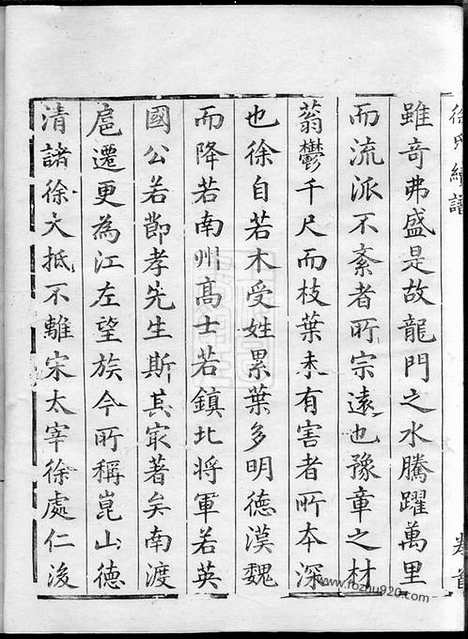 徐氏續譜 卷首
雖奇弗盛是故龍門之水騰躍萬里
而流派不紊者所宗遠也豫章之材
蓊鬱千尺而枝葉未有害者所本深
也徐自若木受姓累葉多明德漢魏
而降若南州髙士若鎮北将軍若英
國公若節孝先生斯其㝡著矣南渡
扈遷更為江左望族今所稱崑山德
清諸徐大抵不離宋太宰徐處仁後
www.fozhu920.com